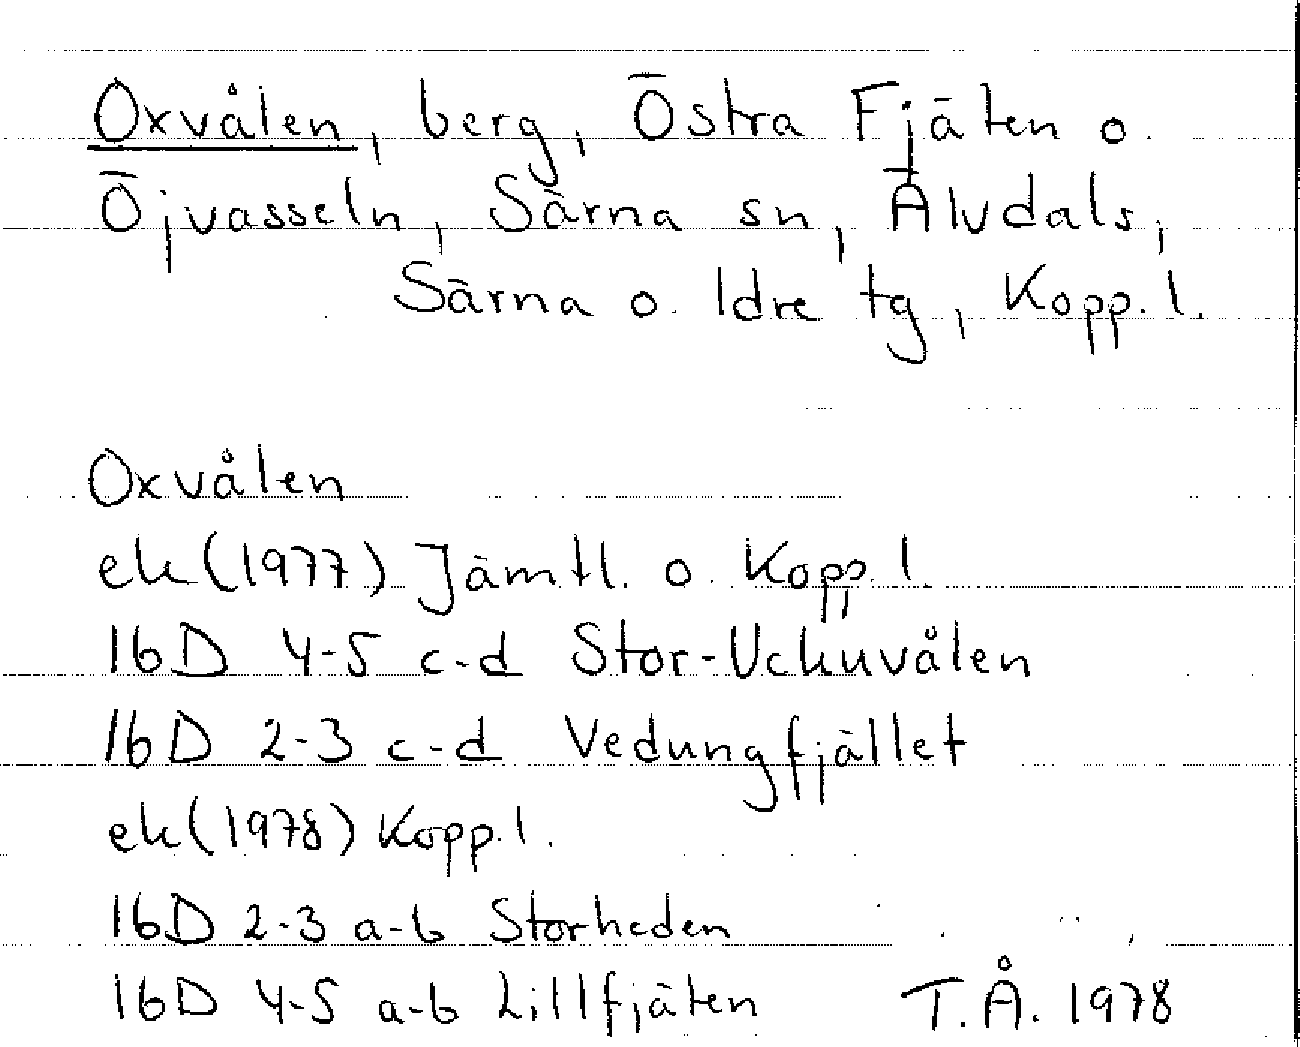 Oxvålen, berg, Östra Fjäten o.
Öjvasseln, Särna sn, Älvdals,
Särna o. Idre tg, Kopp. l.
Oxvålen
ek (1977) Jämtl. o. Kopp. l.
16D 4-5 c-d Stor-Uckuvålen
16D 2-3 c-d Vedungfjället
ek (1978) Kopp. l.
16D 2-3 a-b Storheden
16D 4-5 a-b Lillfjäten T.Å. 1978